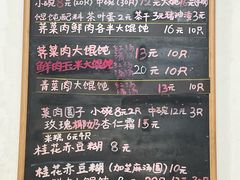 小碗8元(20只) 中碗(30只)12元
馄饨配料 茶叶蛋2元 茶干3元
荠菜肉肉各半馄饨 16元 10只
荠菜肉大馄饨 13元 10只
鲜肉玉米大馄饨 20元 10只
青菜肉大馄饨 13元 10只
菜肉圆子 小碗8元2只 中碗12元3只
玫瑰 奶杏仁霜 15元
米糕6元4只
桂花赤豆糊 8元
桂花赤豆糊(加芝麻汤圆)10元